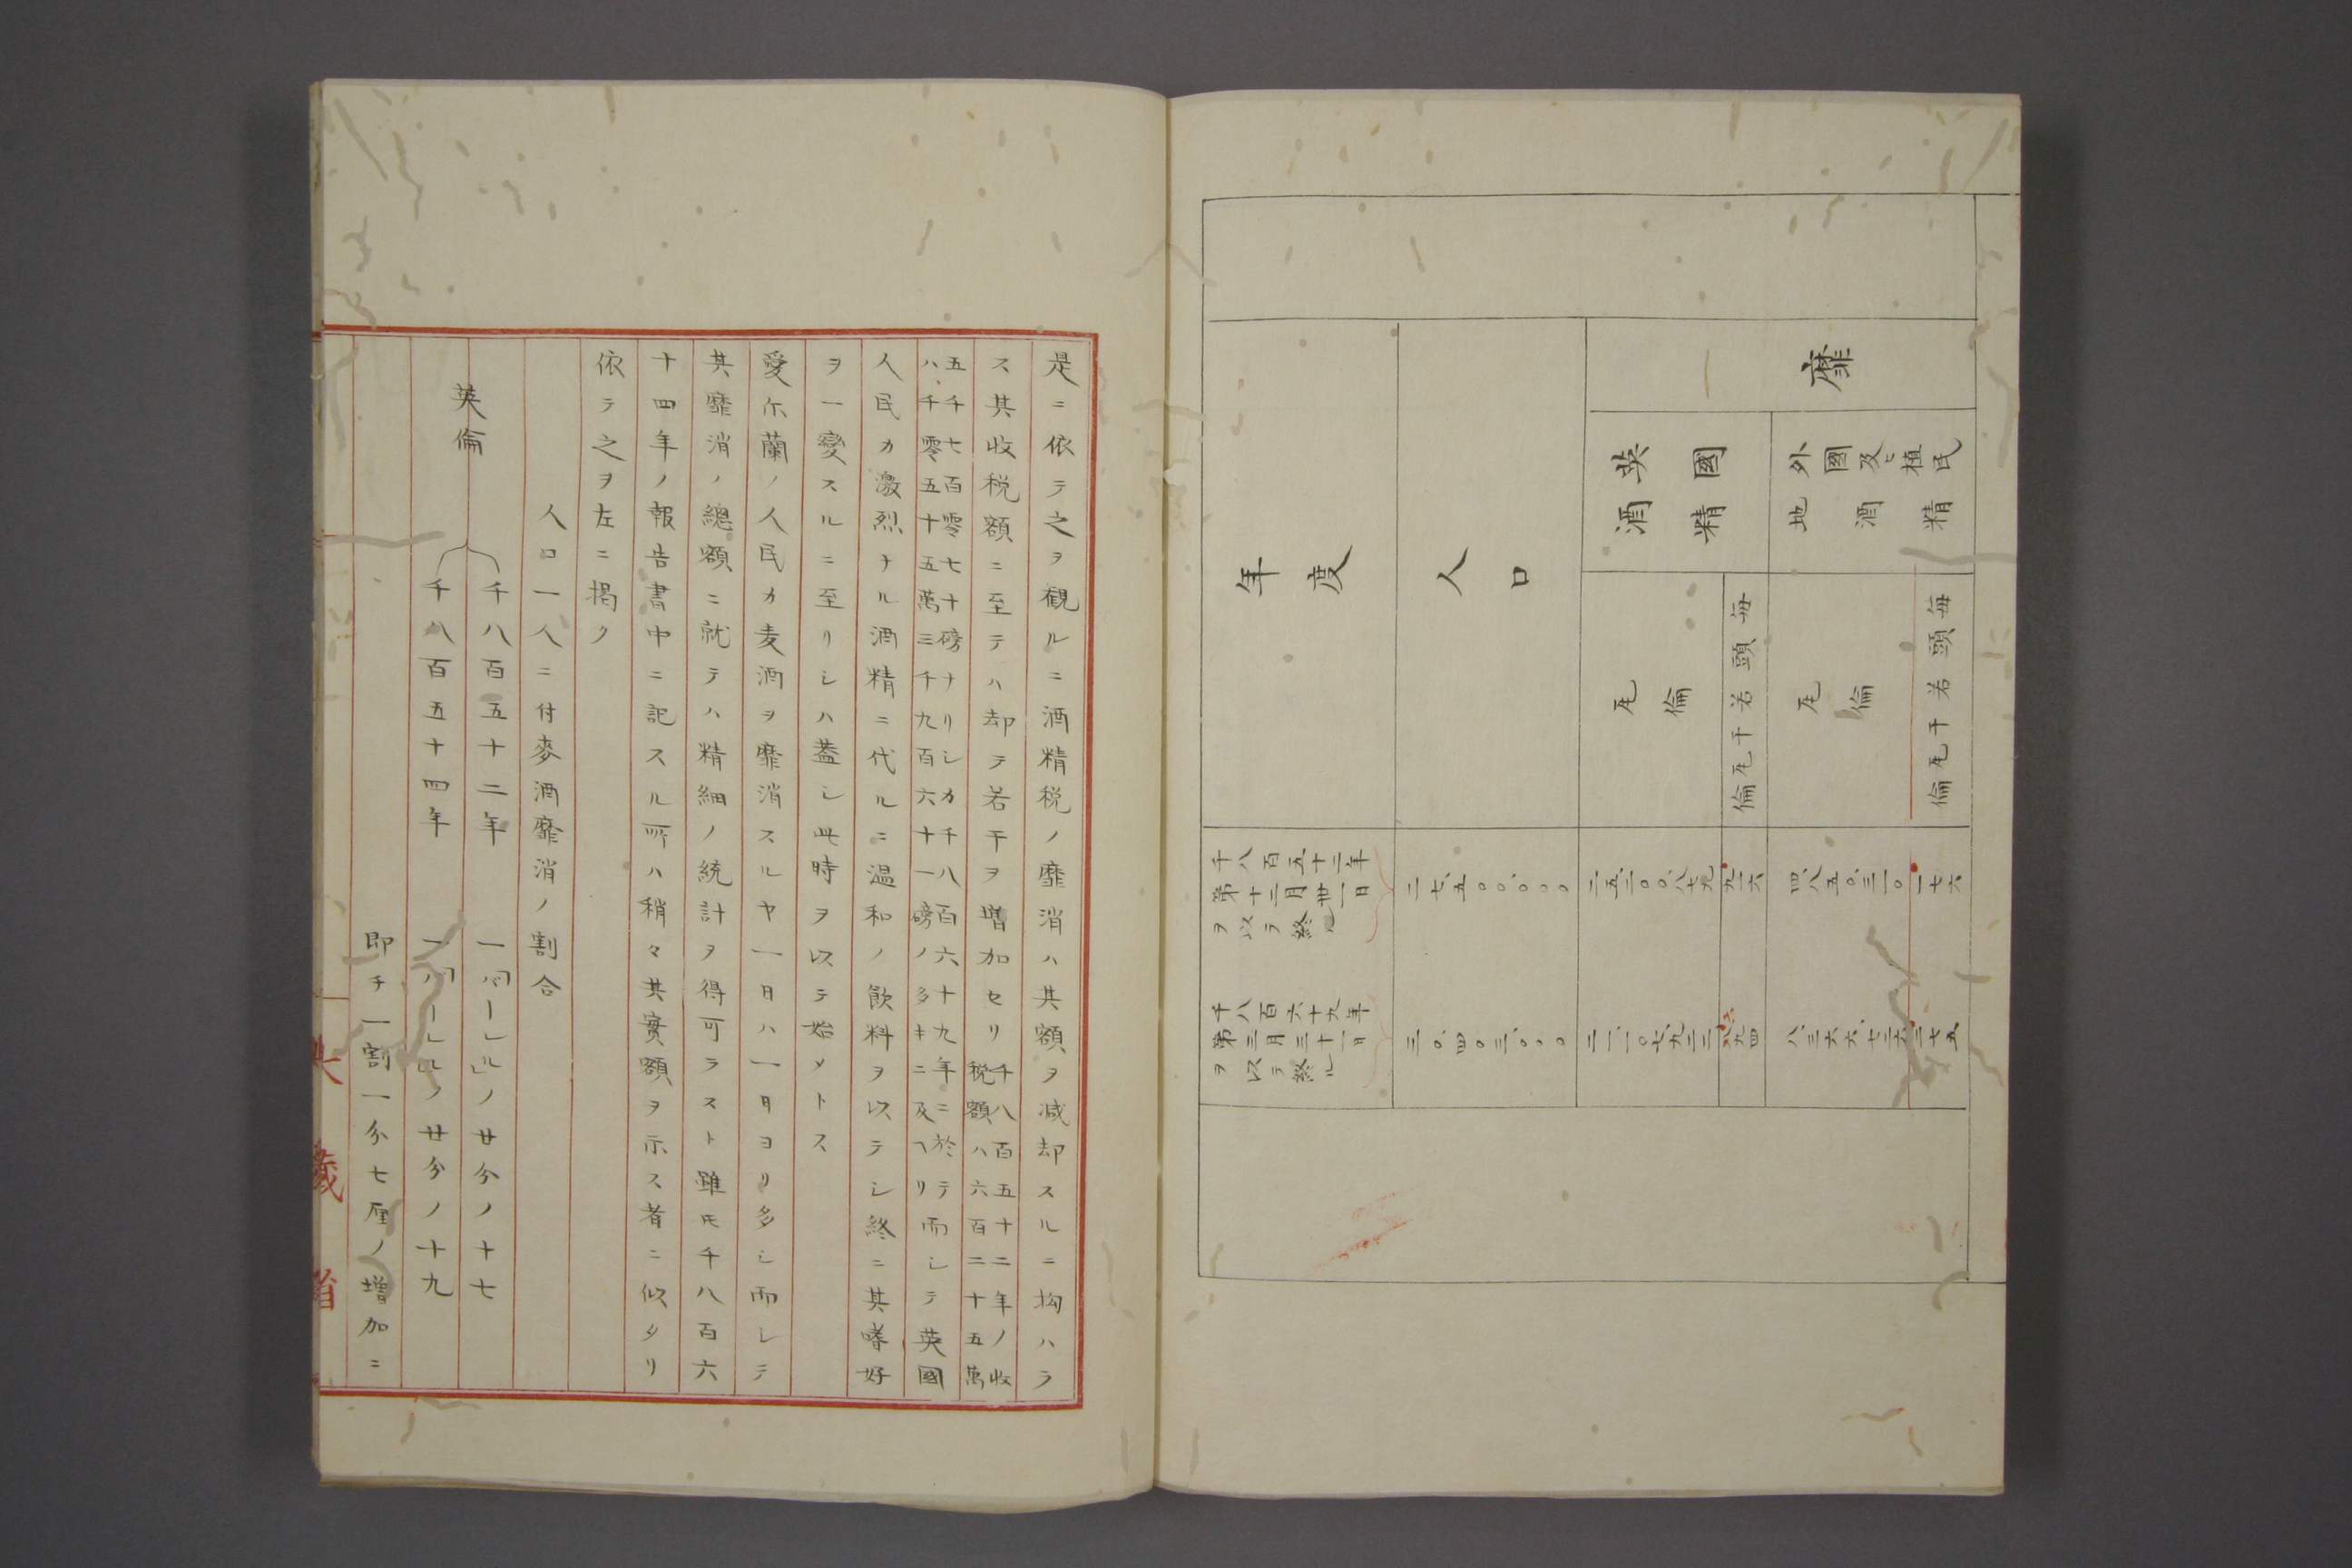 靡
外國及ヒ植民
地酒精
英國
酒精
毎頭若干瓦倫
瓦倫
毎頭若干瓦倫
瓦倫
人口
年度
千八百五十二年
第十二月卅一日
ヲ以テ終ル
二七、五〇〇、〇〇〇
二五、二〇〇、八七九
九一六
四、八五〇、三一〇
一七六
千八百六十九年
第三月三十一日
ヲ以テ終ル
三〇、四〇三、〇〇〇
二一、一〇七、九三三
六九四
八、三六六、七三六
二七五
是ニ依テ之ヲ觀ルニ酒精税ノ靡消ハ其額ヲ減却スルニ拘ハラ
ス其收税額ニ至テハ却テ若干ヲ増加セリ
千八百五十二年ノ收
税額ハ六百二十五萬
五千七百零七十磅ナリシカ千八百六十九年ニ於テ
ハ千零五十五萬三千九百六十一磅ノ多キニ及ヘリ
而シテ英國
人民カ激烈ナル酒精ニ代ルニ温和ノ飲料ヲ以テシ終ニ其嗜好
ヲ一變スルニ至リシハ蓋シ此時ヲ以テ始メトス
愛尓蘭ノ人民カ麦酒ヲ靡消スルヤ一日ハ一日ヨリ多シ而シテ
其靡消ノ總額ニ就テハ精細ノ統計ヲ得可ラスト雖㪽千八百六
十四年ノ報告書中ニ記スル所ハ稍々其實額ヲ示ス者ニ似タリ
依テ之ヲ左ニ掲ク
人口一人ニ付麥酒靡消ノ割合
英倫
千八百五十二年 一「バーレル」ノ廿分ノ十七
千八百五十四年 一「バーレル」ノ廿分ノ十九
即チ一割一分七厘ノ増加ニ